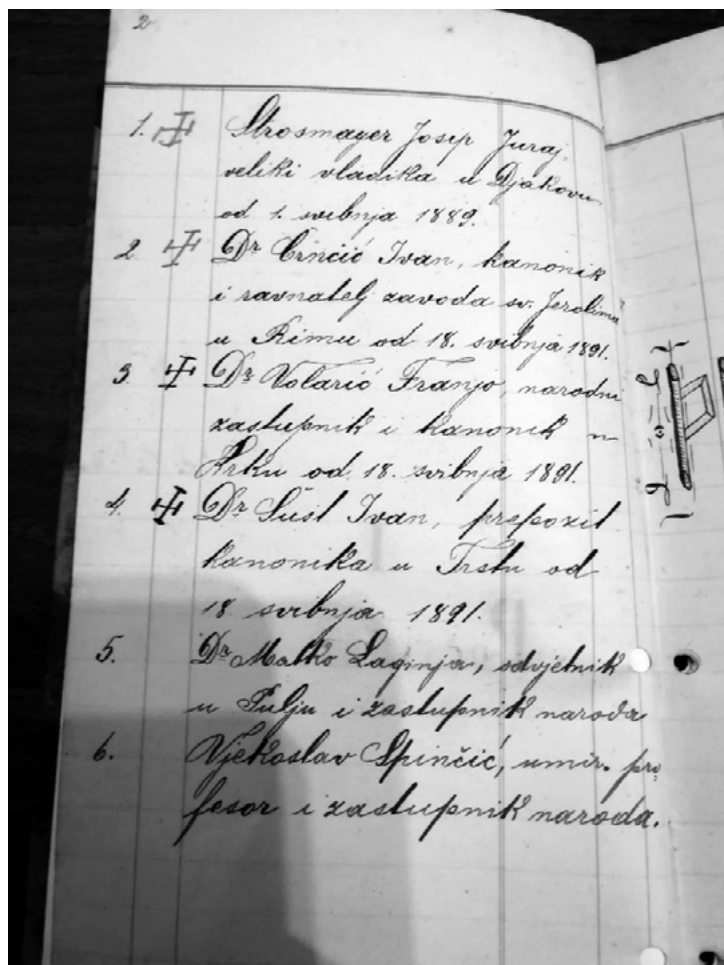 2
1. Strosmayer Josip Juraj,
veliki vladika u Djakovu
od 1. svibnja 1889.
2. Dr Crnčić Ivan, kanonik
i ravnatelj zavoda sv. Jerolima
u Rimu od 18. svibnja 1891.
3. Dr Volarić Franjo, narodni
zastupnik i kanonik u
Krku od 18. svibnja 1891.
4. Dr Šust Ivan, prepozit
kanonika u Trstu od
18. svibnja 1891.
5. Dr Matko Laginja, odvjetnik
u Pulju i zastupnik naroda
6. Vjekoslav Spinčić, umir. pro
fesor i zastupnik naroda.